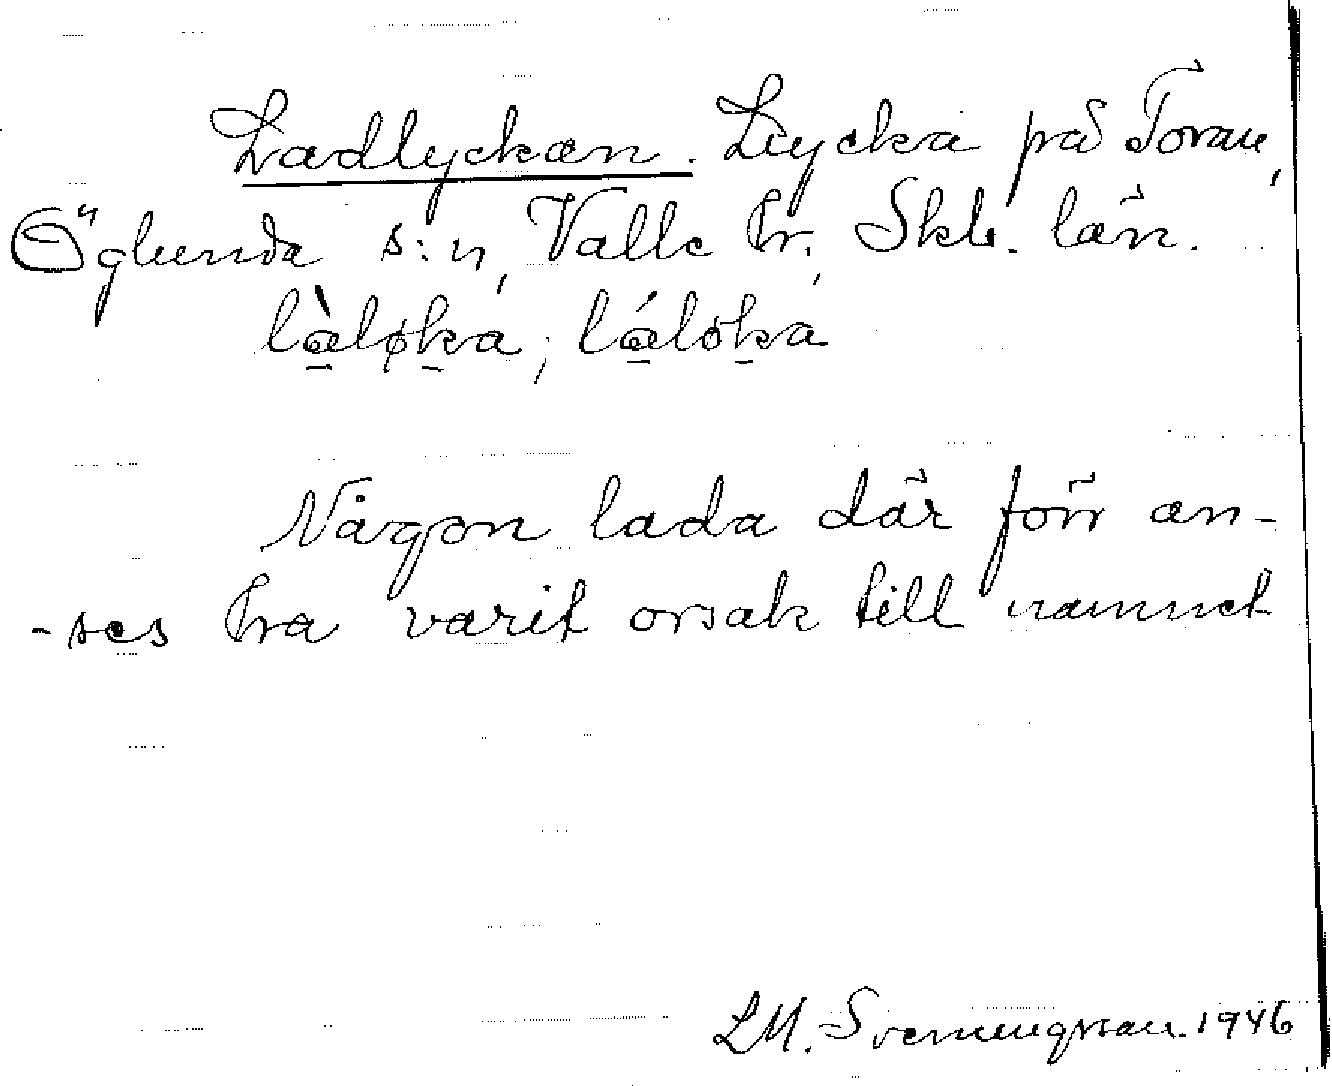 Ladlyckan. Lycka på Toran,
Öglunda s:n, Valle hr, Skb. län.
làløka, láløka
Någon lada där förr an-
-ses ha varit orsak till namnet
LM. Svenungsson. 1946